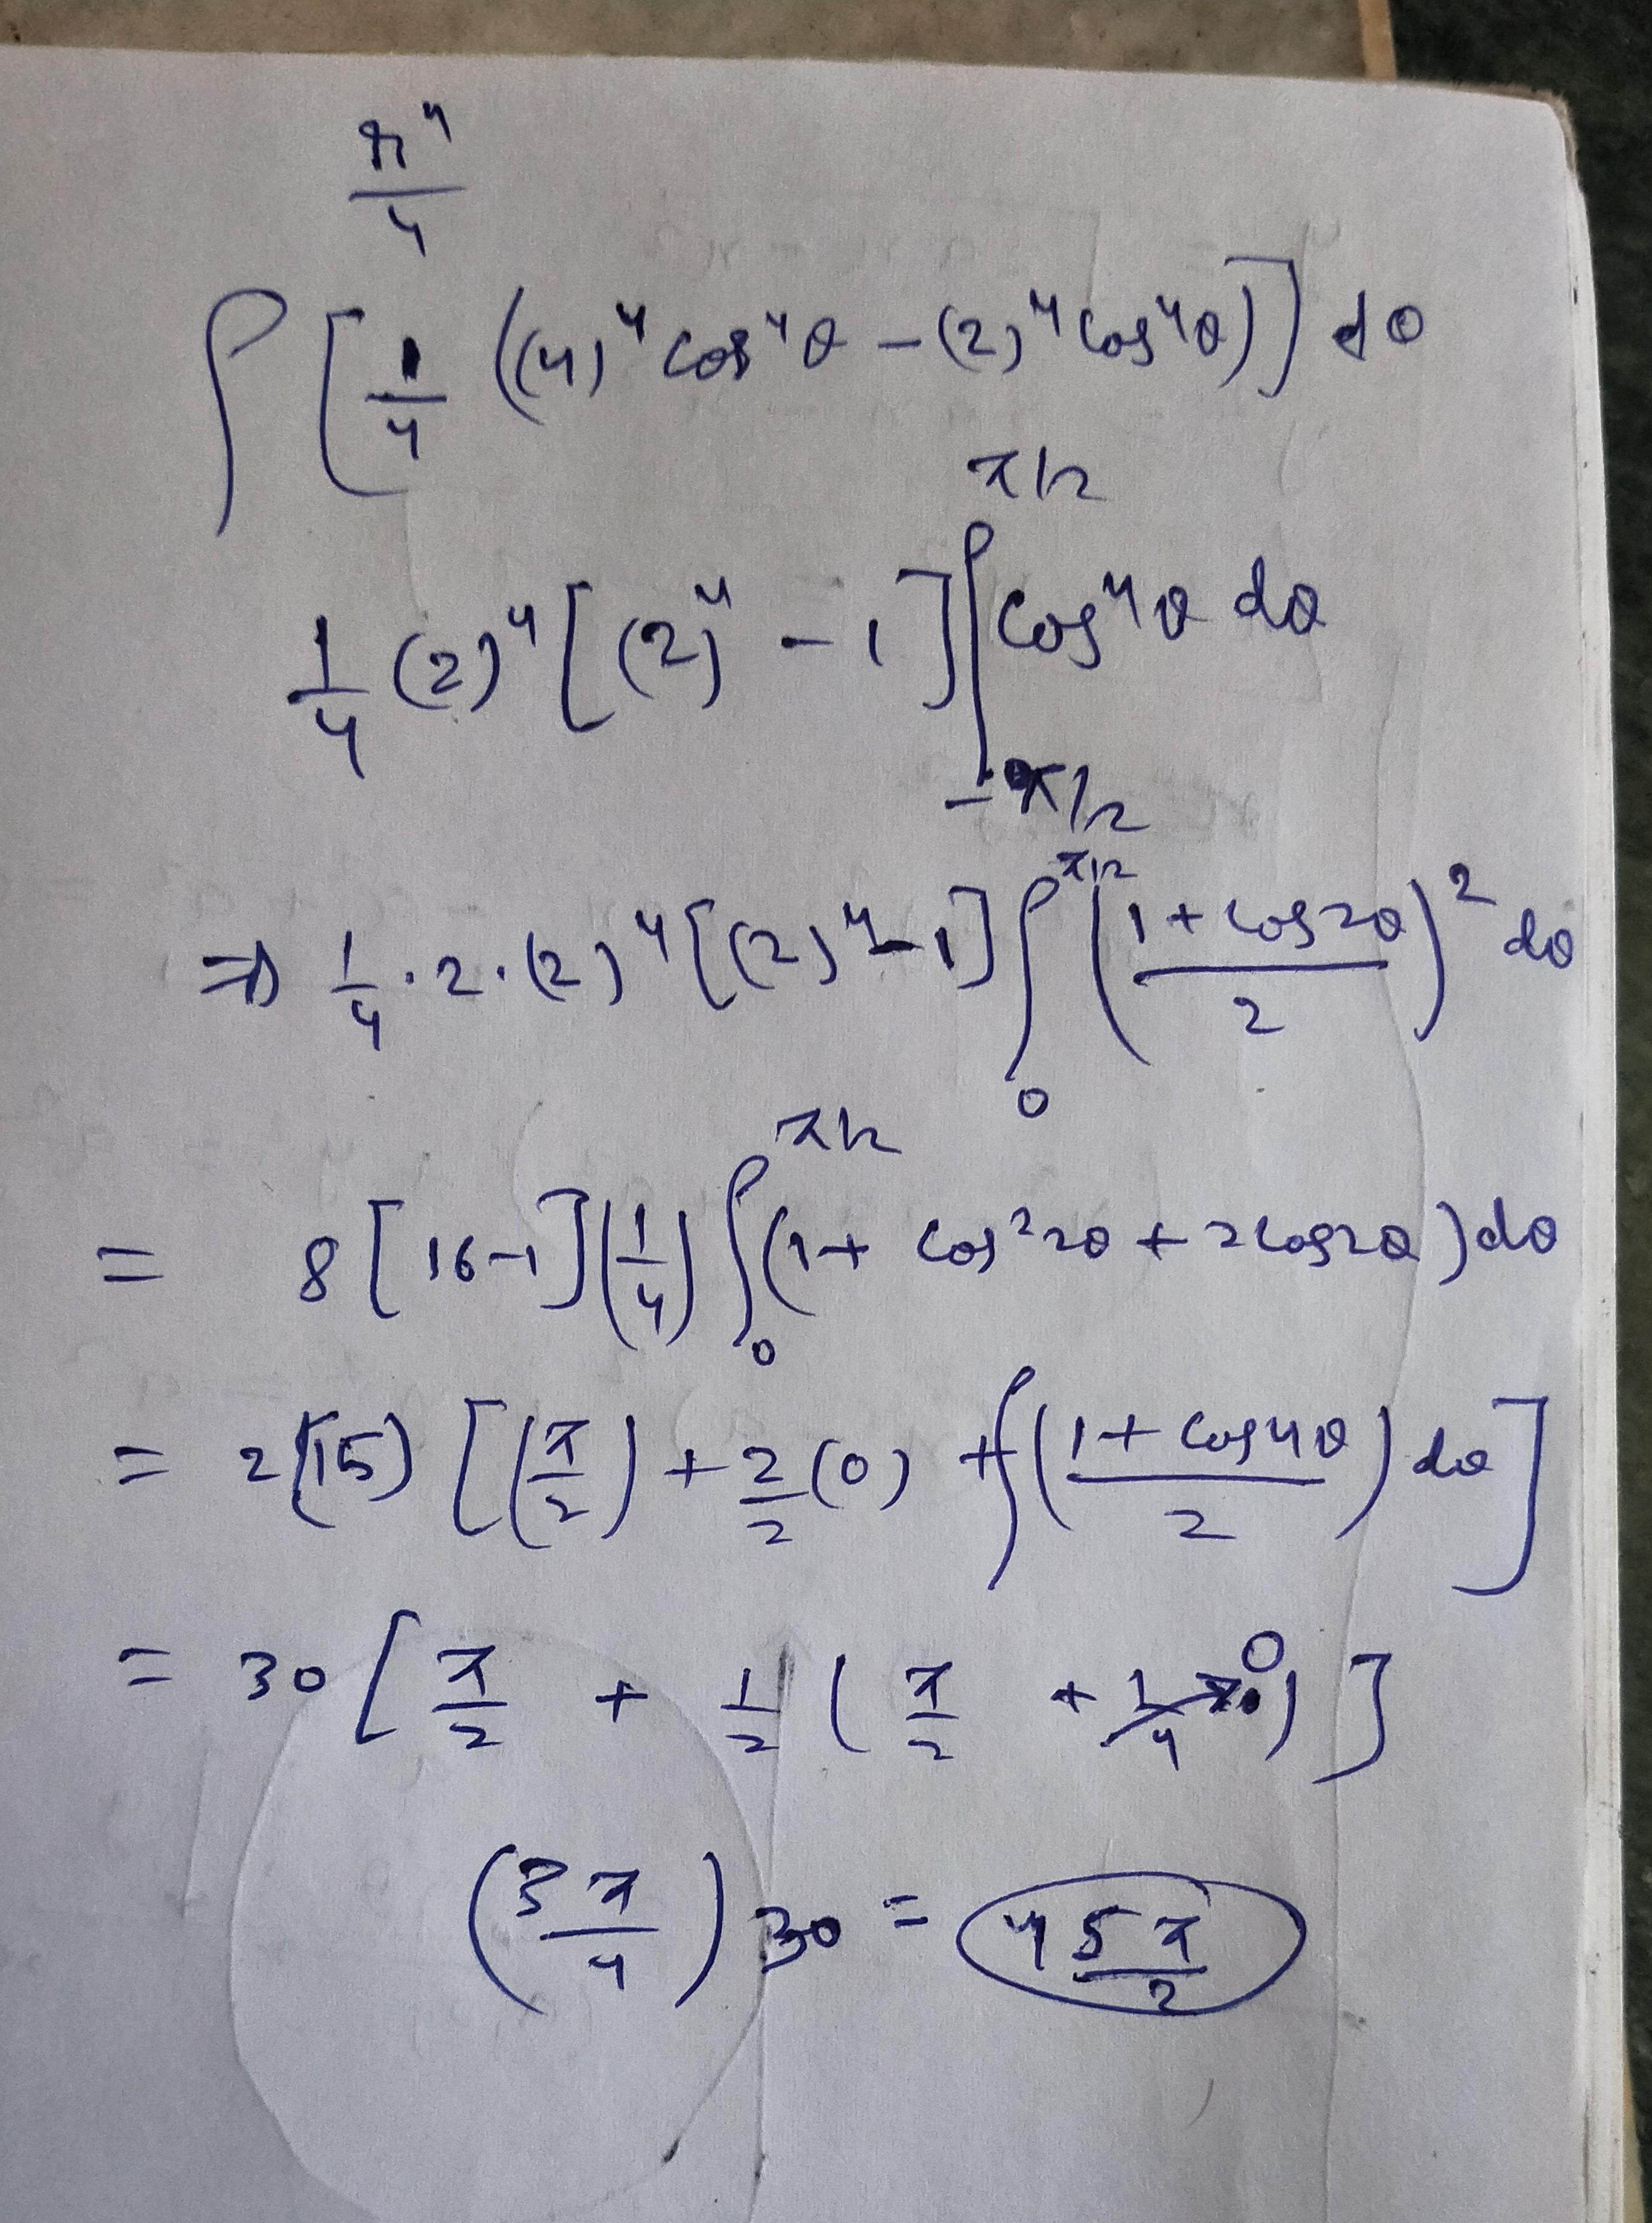 r⁴/4
∫ [1/4 ((4)⁴ cos⁴θ - (2)⁴ cos⁴θ)] dθ
1/4 (2)⁴ [(2)⁴ - 1] ∫_{-π/2}^{π/2} cos⁴θ dθ
⇒ 1/4 · 2 · (2)⁴ [(2)⁴ - 1] ∫_0^{π/2} ((1 + cos2θ)/2)² dθ
= 8 [16-1] (1/4) ∫_0^{π/2} (1 + cos²2θ + 2cos2θ) dθ
= 2(15) [(π/2) + 2/2 (0) + ∫ ((1 + cos4θ)/2) dθ]
= 30 [π/2 + 1/2 (π/2 + 0)]
(3π/4) 30 = 45π/2